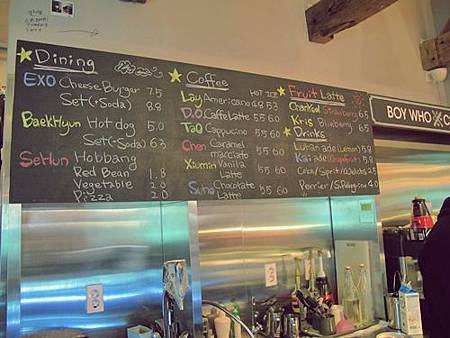 Dining
EXO Cheese Burger 7.5
Set(+Soda) 8.8
BaekHyun Hotdog 5.0
Set(+Soda) 6.3
SeHun Hobbang
Red Bean 1.8
Vegetable 2.0
Pizza 2.0
Coffee
HOT ICE
Lay Americano 4.8 5.3
D.O. Caffe Latte 5.5 6.0
Tao Cappucino 5.5 6.0
Chen Caramel macciato 5.5 6.0
Xiumin Vanilla Latte 5.5 6.0
Suho Chocolate Latte 5.5 6.0
Fruit Latte
Chankyol Strawberry 6.5
Kris Blueberry 6.5
Drinks
Luhan ade (Lemon) 5.8
Kai ade (Grapefruit) 5.8
Coke/Sprit/ 2.5
Perrier/S.Pellegrino 4.0
BOY WHO C